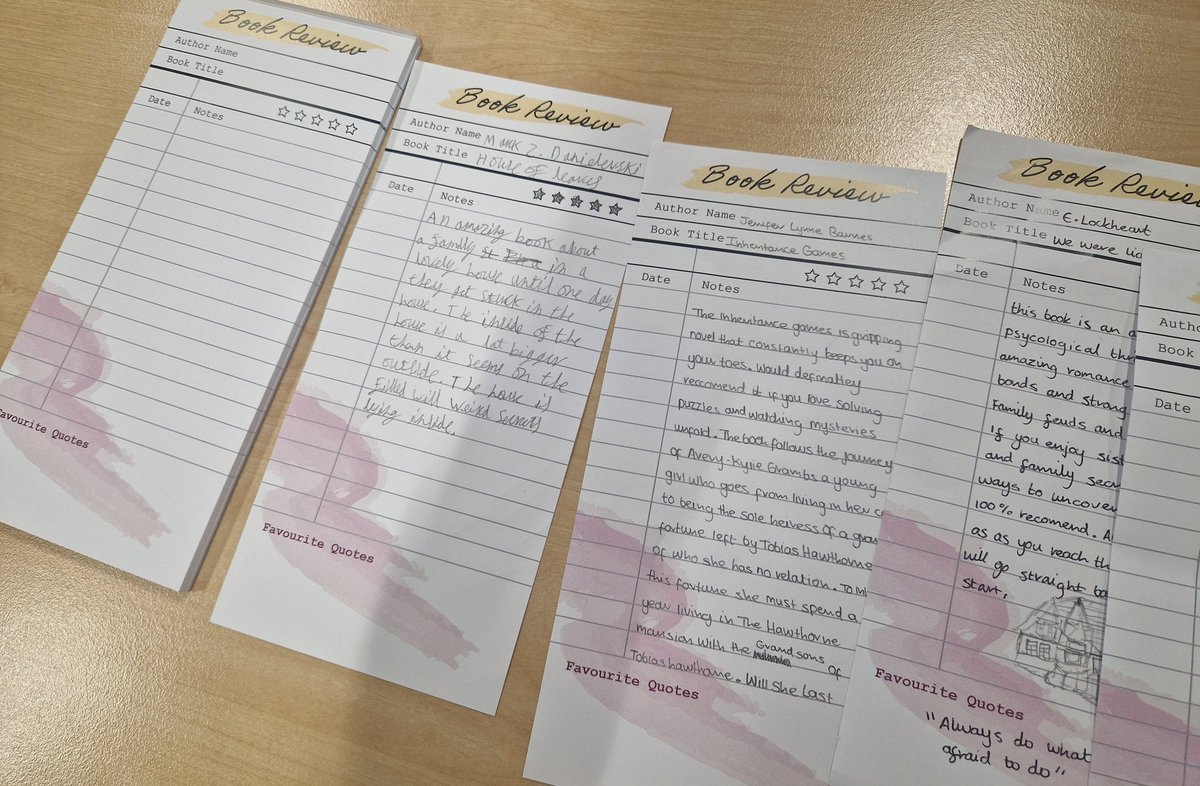 Book Review
Author Name
Book Title
Date
Notes
Favourite Quotes
Book Review
Author Name Mark Z. Danielevski
Book Title House of leaves
Date
Notes
An amazing book about
a family in a
lovely house until one day
they get stuck in the
house. The inside of the
house is a lot bigger
than it seems on the
outside. The house is
filled will weird secrets
lying inside.
Favourite Quotes
Book Review
Author Name Jenifer Lynne Barnes
Book Title Inheritance Games
Date
Notes
The Inheritance games is gripping
novel that constantly keeps you on
your toes. Would definatley
recomend it if you love solving
puzzles and watching mysteries
unfold. The book follows the journey
of Avery-Kylie Grambs a young
girl who goes from living in her
to being the sole heiress of a
fortune left by Tobias Hawthorne
of who she has no relation. To
this fortune she must spend a
year living in The Hawthorne
mansion with the Grandsons of
Tobias hawthorne. Will she Last
Favourite Quotes
Book Review
Author Name E. Lockheart
Book Title We were
Date
Notes
this book is an
Psycological
amazing romance
bonds and strong
Family feuds and
If you enjoy
and family
ways to uncover
100% recomend.
as as you reach
will go straight
start,
Favourite Quotes
"Always do what
afraid to do"
Book
Date